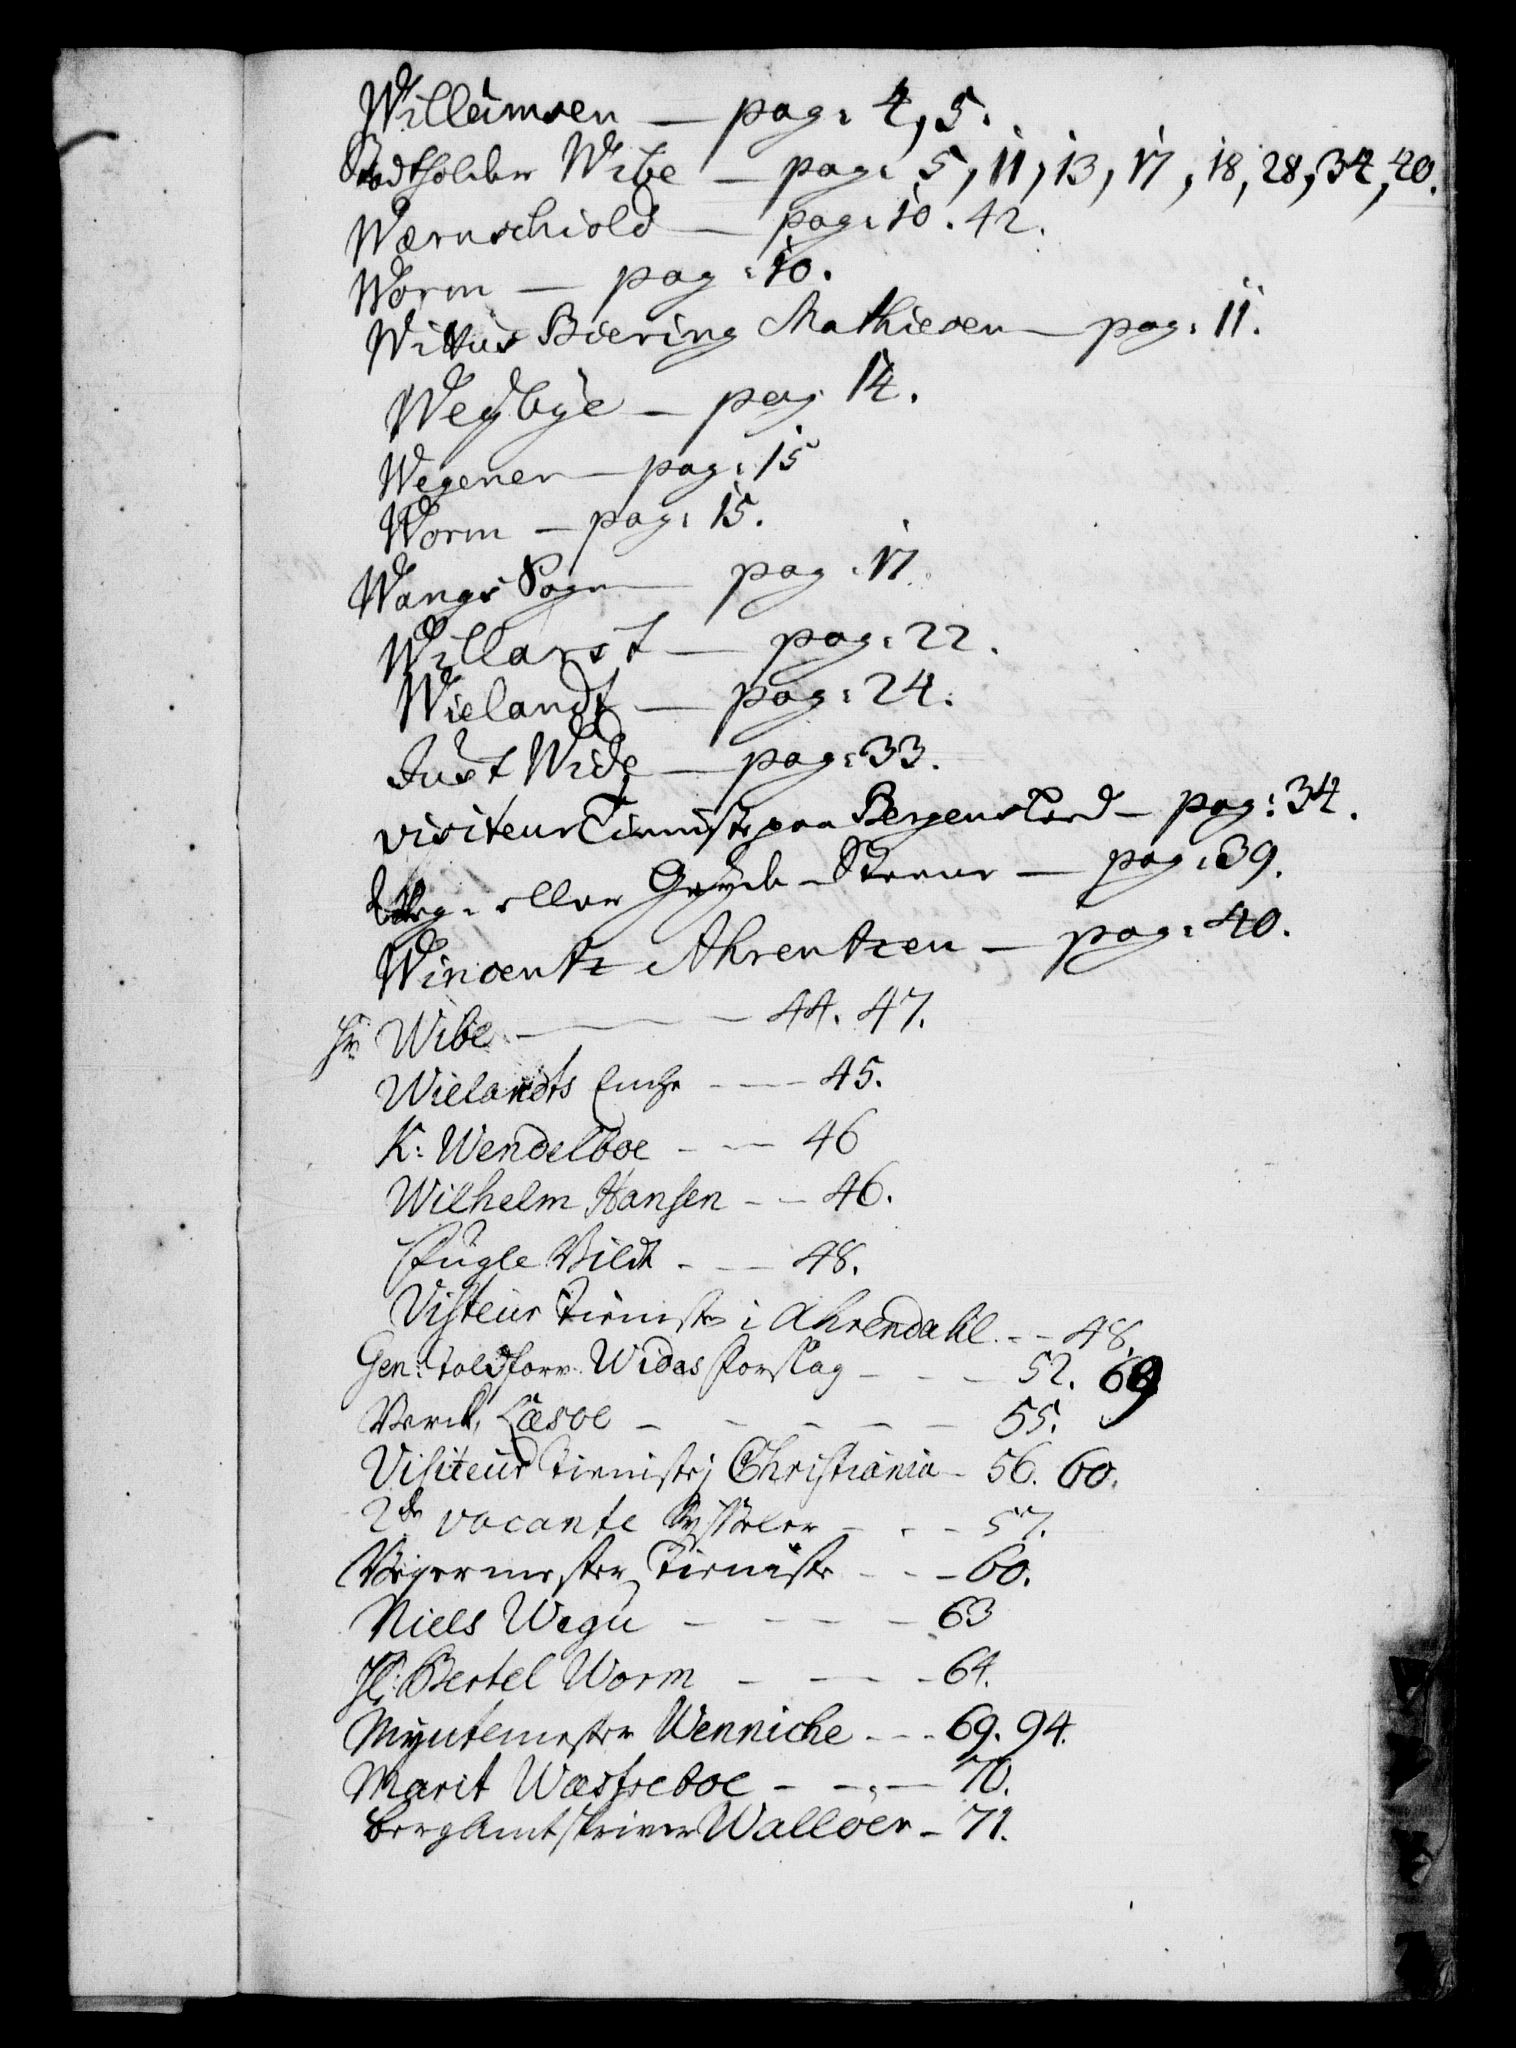 Willumsen — pag: 4, 5.
Stadtholder Wibe — pag: 5, 11, 13, 17, 18, 28, 34, 40.
Wærnschiold — pag: 10. 42.
Worm — pag: 10.
Wittus Biering Mathiesen — pag: 11.
Weybye — pag 14.
Wegener — pag: 15
Worm — pag: 15.
Wangs Sogn — pag: 17.
Willarst — pag: 22.
Wielandt — pag: 24.
Just Wide — pag: 33.
visiteur Tieniste paa Bergens — pag: 34.
eller — pag: 39.
Wincentz Ahrentzen — pag: 40.
Hr Wibe — 44. 47.
Wielandts Enche — 45.
K: Wendelboe — 46
Wilhelm Hansen — 46.
Fugle Vildt — 48.
Visiteur Tieniste i Ahrendahl — 48.
Gen: toldforv. Wides forslag — 52. 69
Læsoe — 55.
Visiteur Tieniste i Christiania — 56. 60.
2de vacante — 57.
Veyermester Tieniste — 60.
Niels Wegu — 63
Hr: Bertel Worm — 64.
Myntemester Wenniche — 69. 94.
Marit Wæstreboe — 70.
bergAmtskriver Wallöer — 71.